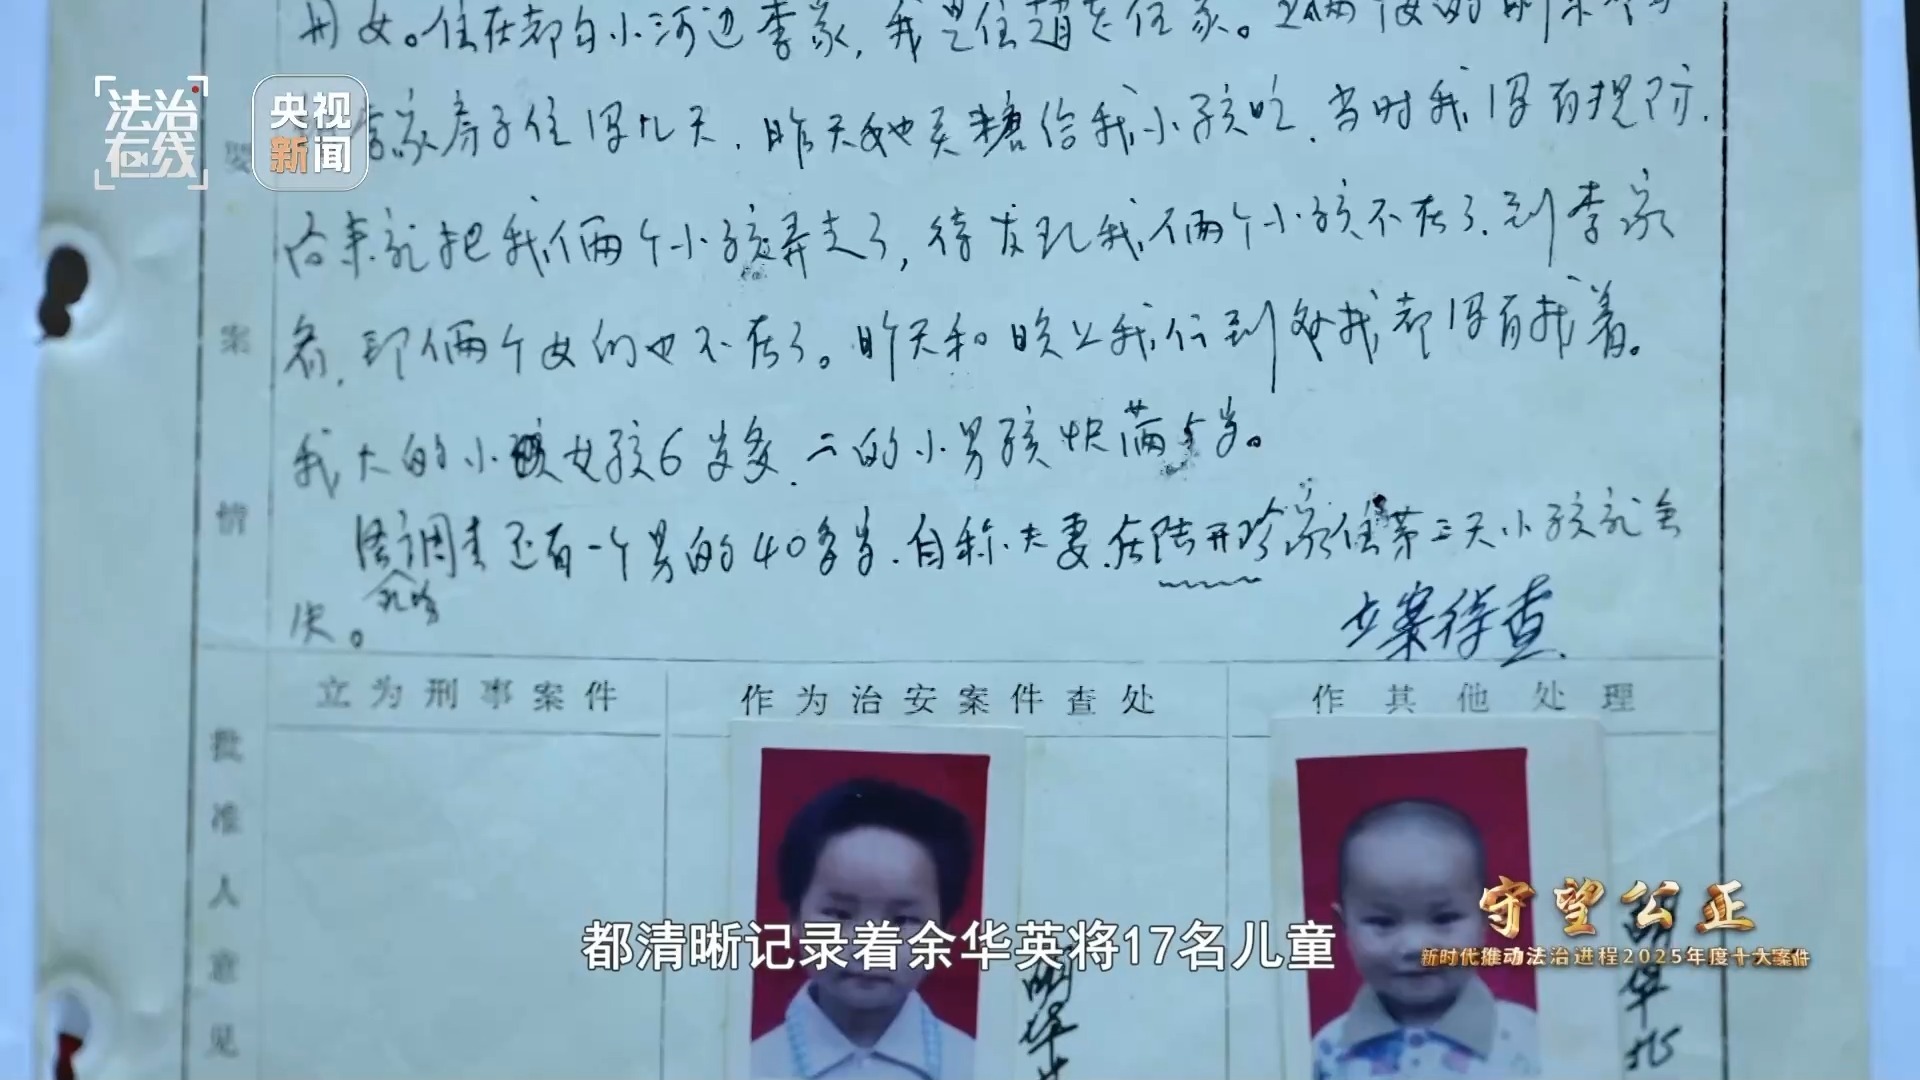 法治在线
央视新闻
住在都白小河边李家,我是住赵老伍家。
家房子住得几天,昨天她买糖给我小孩吃,当时我没有提防.
后来就把我们俩个小孩弄走了,待发现我们俩个小孩不在了,到李家
看,那俩个女的也不在了。昨天和晚上我们到处找都没有找着。
我大的小孩女孩6岁多,二的小男孩快满5岁。
经调查还有一个男的40多岁.自称夫妻.在陆开珍家住第三天小孩就会
失。
立案待查
案情
立为刑事案件
作为治安案件查处
作其他处理
批准人意见
都清晰记录着余华英将17名儿童
守望公正
新时代推动法治进程2025年度十大案件